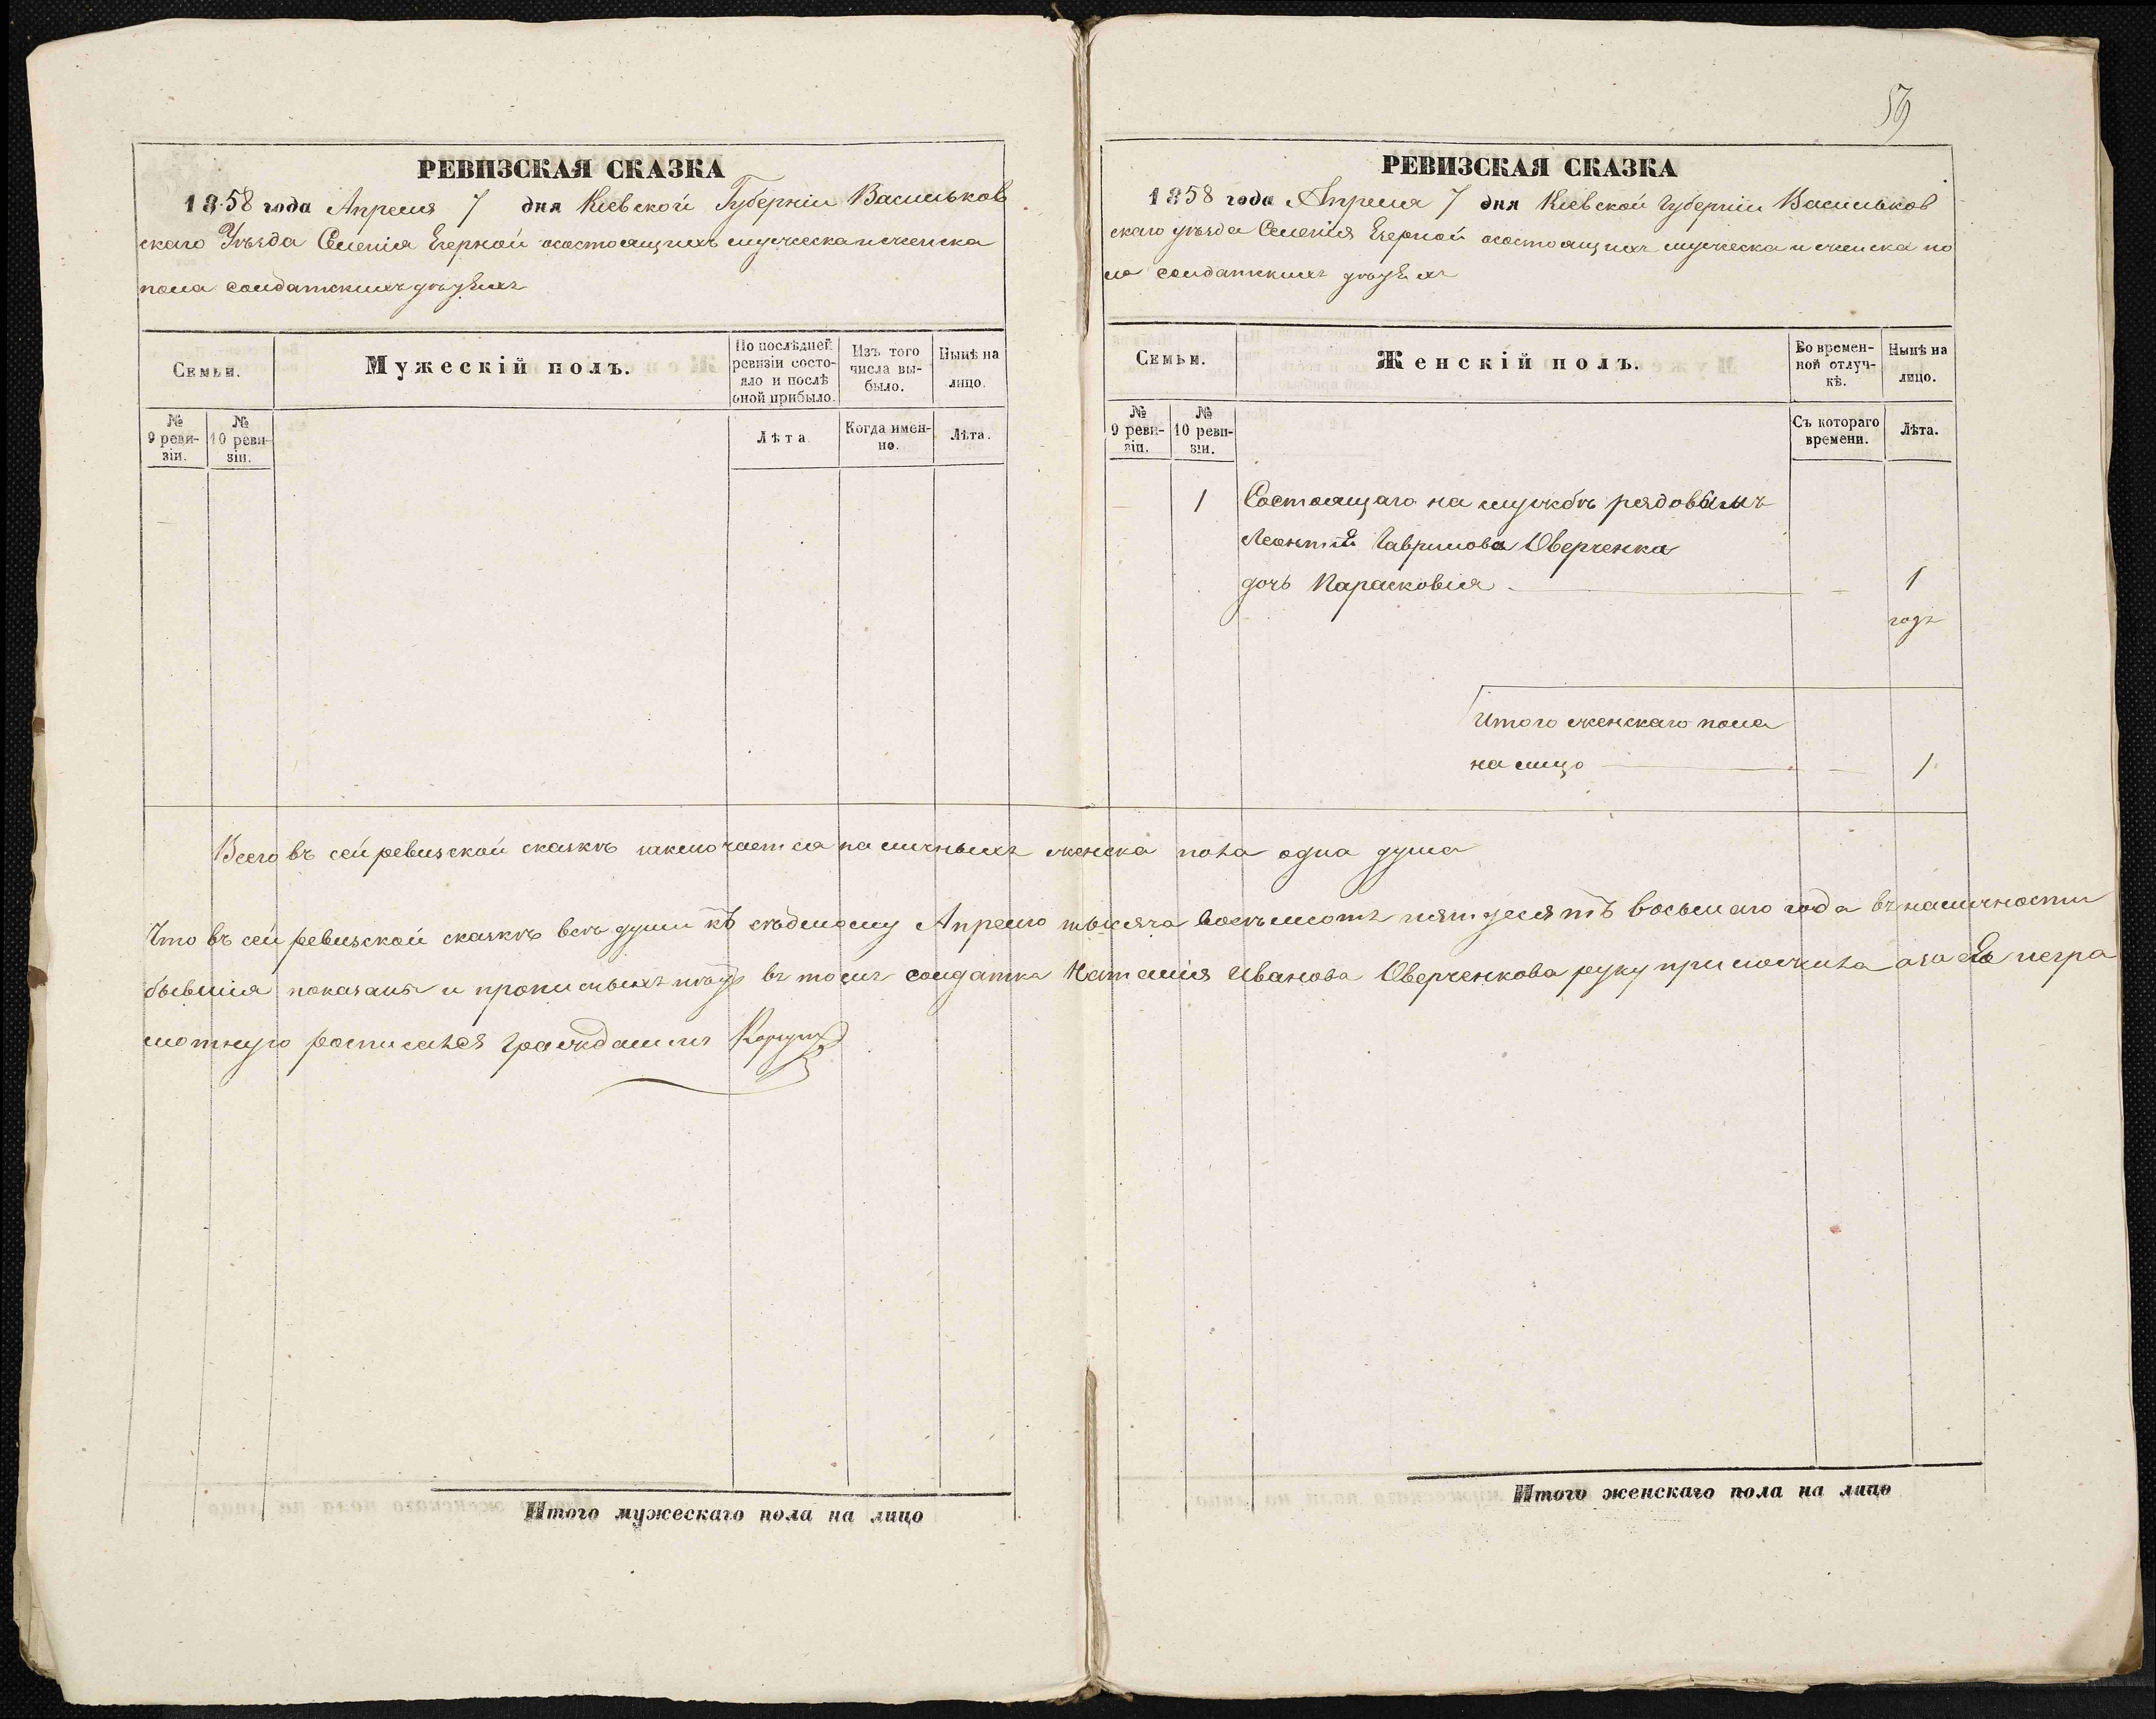 59
РЕВИЗСКАЯ СКАЗКА
1858 года Апреля 7 дня Кіевской Губерніи Васильков
скаго Уѣзда Селенія Езерной осостоящихъ мужеска и женска
пола солдатскихъ дѣтяхъ
Семьи.
Мужескій полъ.
По послѣдней ревизіи состояло и послѣ оной прибыло.
Изъ того числа выбыло.
Нынѣ на лицо.
№ 9 ревизіи.
№ 10 ревизіи.
Лѣта
Когда именно.
Лѣта.
РЕВИЗСКАЯ СКАЗКА
1858 года Апреля 7 дня Кіевской Губерніи Васильков
скаго уѣзда Селенія Езерной осостоящихъ мужеска и женска по
ла солдатскихъ дѣтяхъ
Семьи.
Женскій полъ.
Во временной отлучкѣ.
Нынѣ на лицо.
№ 9 ревизіи.
№ 10 ревизіи.
Съ котораго времени.
Лѣта.
1 Состоящаго на службѣ рядовымъ
Леонтія Гаврилова Оверченка
дочь Парасковія 1
годъ
Итого женскаго пола
на лицо 1
Всего въ сей ревизской сказкѣ заключается наличныхъ женска пола одна душа
Что въ сей ревизской сказкѣ всѣ души къ седмому Апрелю тысяча восемьсотъ пятдесятъ восьмаго года въ наличности
бывшія показаны и прописныхъ нѣтъ въ томъ солдатка Наталія Иванова Оверченкова руку приложила а за её негра
мотную росписался гражданинъ
Итого мужескаго пола на лицо
Итого женскаго пола на лицо